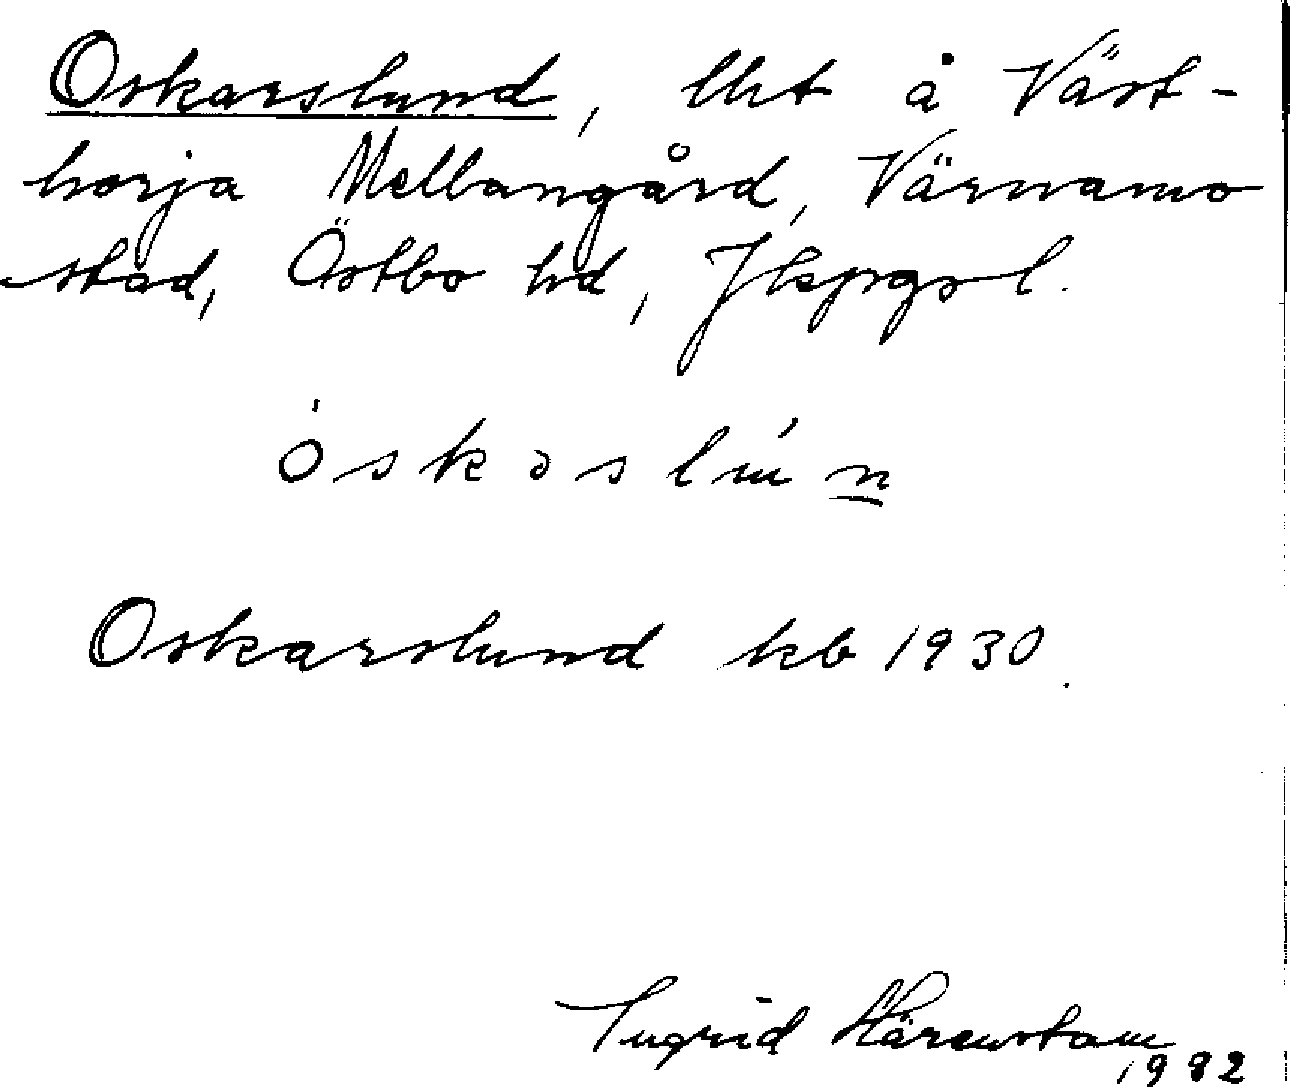 Oskarslund, lht å Väst-
horja Mellangård, Värnamo
stad, Östbo hd, Jkpgs l.
óskɔslún
Oskarslund kb 1930.
Ingrid Härenstam
1982